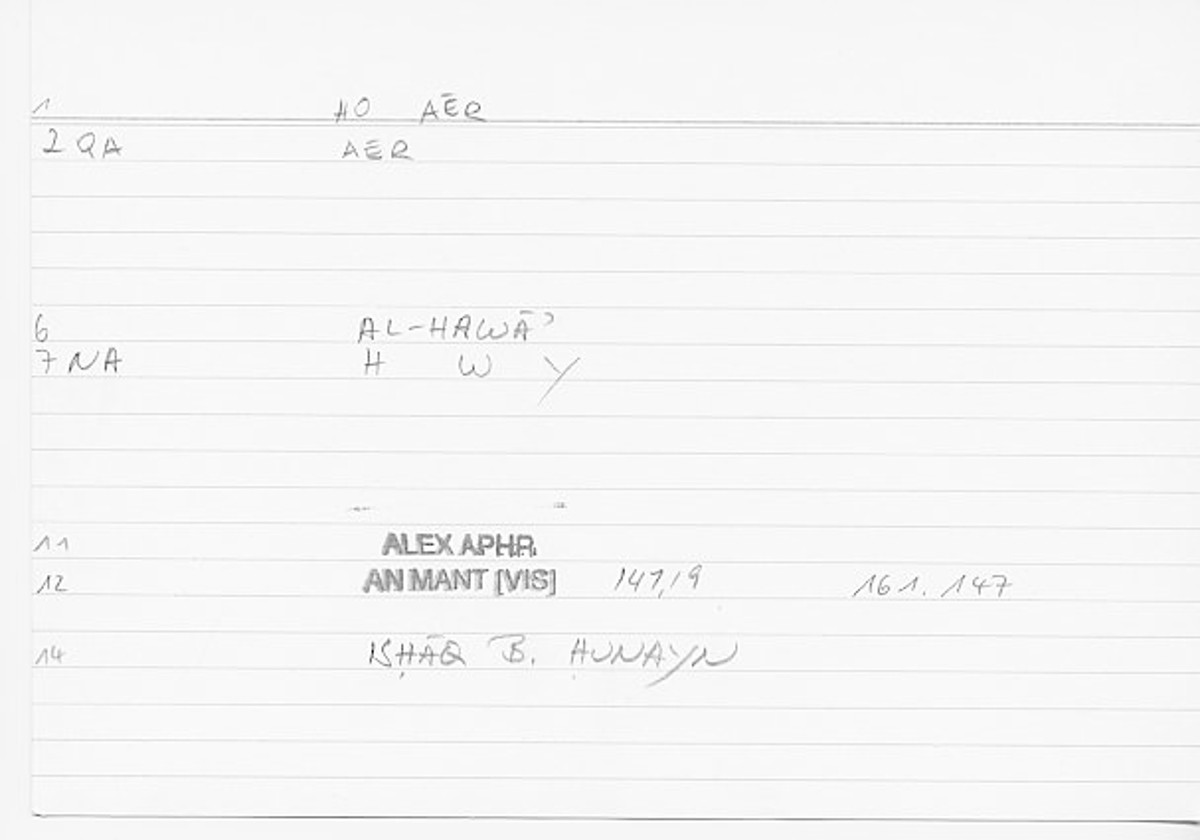 1 HO AĒR
2 QA AER
6 AL-HAWĀʾ
7 NA H W Y
11 ALEX APHR.
12 AN MANT [VIS] 147,19 161.147
14 ISḤĀQ B. ḤUNAYN